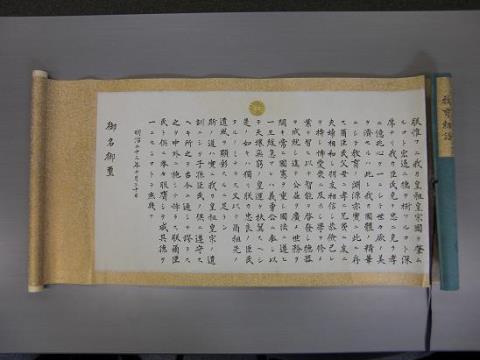 教育勅語
朕惟フニ我カ皇祖皇宗國ヲ肇ム
ルコト宏遠ニ德ヲ樹ツルコト深
厚ナリ我カ臣民克ク忠ニ克ク孝
ニ億兆心ヲ一ニシテ世々厥ノ美
ヲ濟セルハ此レ我カ國體ノ精華
ニシテ教育ノ淵源亦實ニ此ニ存
ス爾臣民父母ニ孝ニ兄弟ニ友ニ
夫婦相和シ朋友相信シ恭儉己レ
ヲ持シ博愛衆ニ及ホシ學ヲ修メ
業ヲ習ヒ以テ智能ヲ啓發シ德器
ヲ成就シ進テ公益ヲ廣メ世務ヲ
開キ常ニ國憲ヲ重シ國法ニ遵ヒ
一旦緩急アレハ義勇公ニ奉シ以
テ天壤無窮ノ皇運ヲ扶翼スヘシ
是ノ如キハ獨リ朕カ忠良ノ臣民
タルノミナラス又以テ爾祖先ノ
遺風ヲ顯彰スルニ足ラン
斯ノ道ハ實ニ我カ皇祖皇宗ノ遺
訓ニシテ子孫臣民ノ俱ニ遵守ス
ヘキ所之ヲ古今ニ通シテ謬ラス
之ヲ中外ニ施シテ悖ラス朕爾臣
民ト俱ニ拳々服膺シテ咸其德ヲ
一ニセンコトヲ庶幾フ
明治二十三年十月三十日
御名御璽